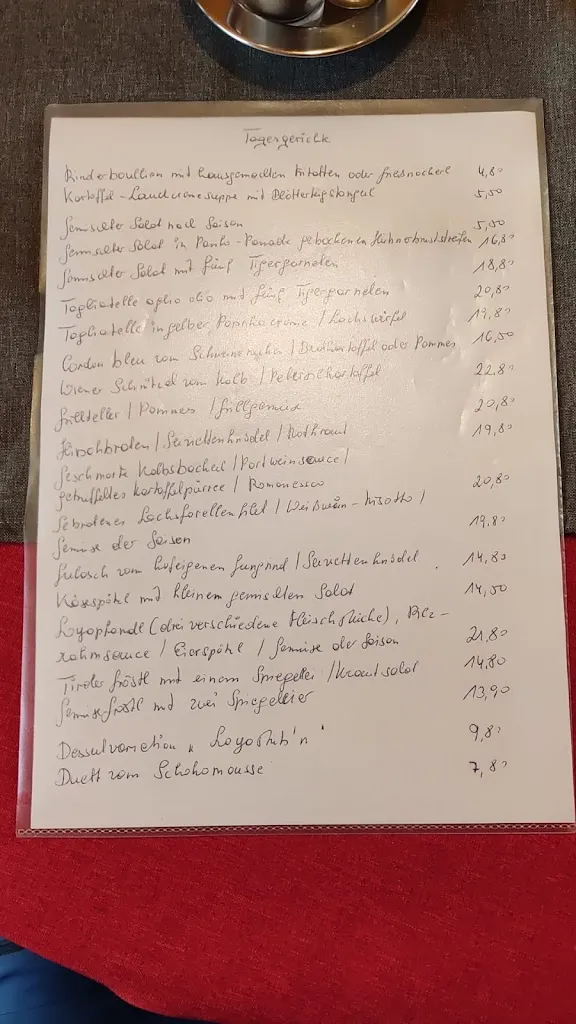 Tagesgerichte
Rinderbouillon mit hausgemachten Fritatten oder Griesnockerl 4,80
Kartoffel-Lauchcremesuppe mit Blätterteigstangerl 5,50
Gemischter Salat nach Saison 5,50
Gemischter Salat in Panko-Panade gebackenen Hühnerbruststreifen 16,80
Gemischter Salat mit fünf Tigergarnelen 18,80
Tagliatelle aglio olio mit fünf Tigergarnelen 20,80
Tagliatelle in gelber Paprikacreme / Lachswürfel 19,80
Cordon bleu vom Schweinerücken / Bratkartoffel oder Pommes 16,50
Wiener Schnitzel vom Kalb / Petersilkartoffel 22,80
Grillteller / Pommes / Grillgemüse 20,80
Hirschbraten / Serviettenknödel / Rotkraut 19,80
Geschmorte Kalbsbackerl / Portweinsauce /
getrüffeltes Kartoffelpürree / Romanesco 20,80
Gebratenes Lachsforellenfilet / Weißwein-Risotto /
Gemüse der Saison 19,80
Gulasch vom hofeigenen Jungrind / Serviettenknödel 14,80
Kässpätzl mit kleinem gemischten Salat 14,50
Logopfandl (drei verschiedene Fleischstücke), Pilz-
rahmsauce / Eierspätzl / Gemüse der Saison 21,80
Tiroler Gröstl mit einem Spiegelei / Krautsalat 14,80
Gemüse-Gröstl mit zwei Spiegeleier 13,90
Dessertvariation 9,80
Duett vom Schokomousse 7,80